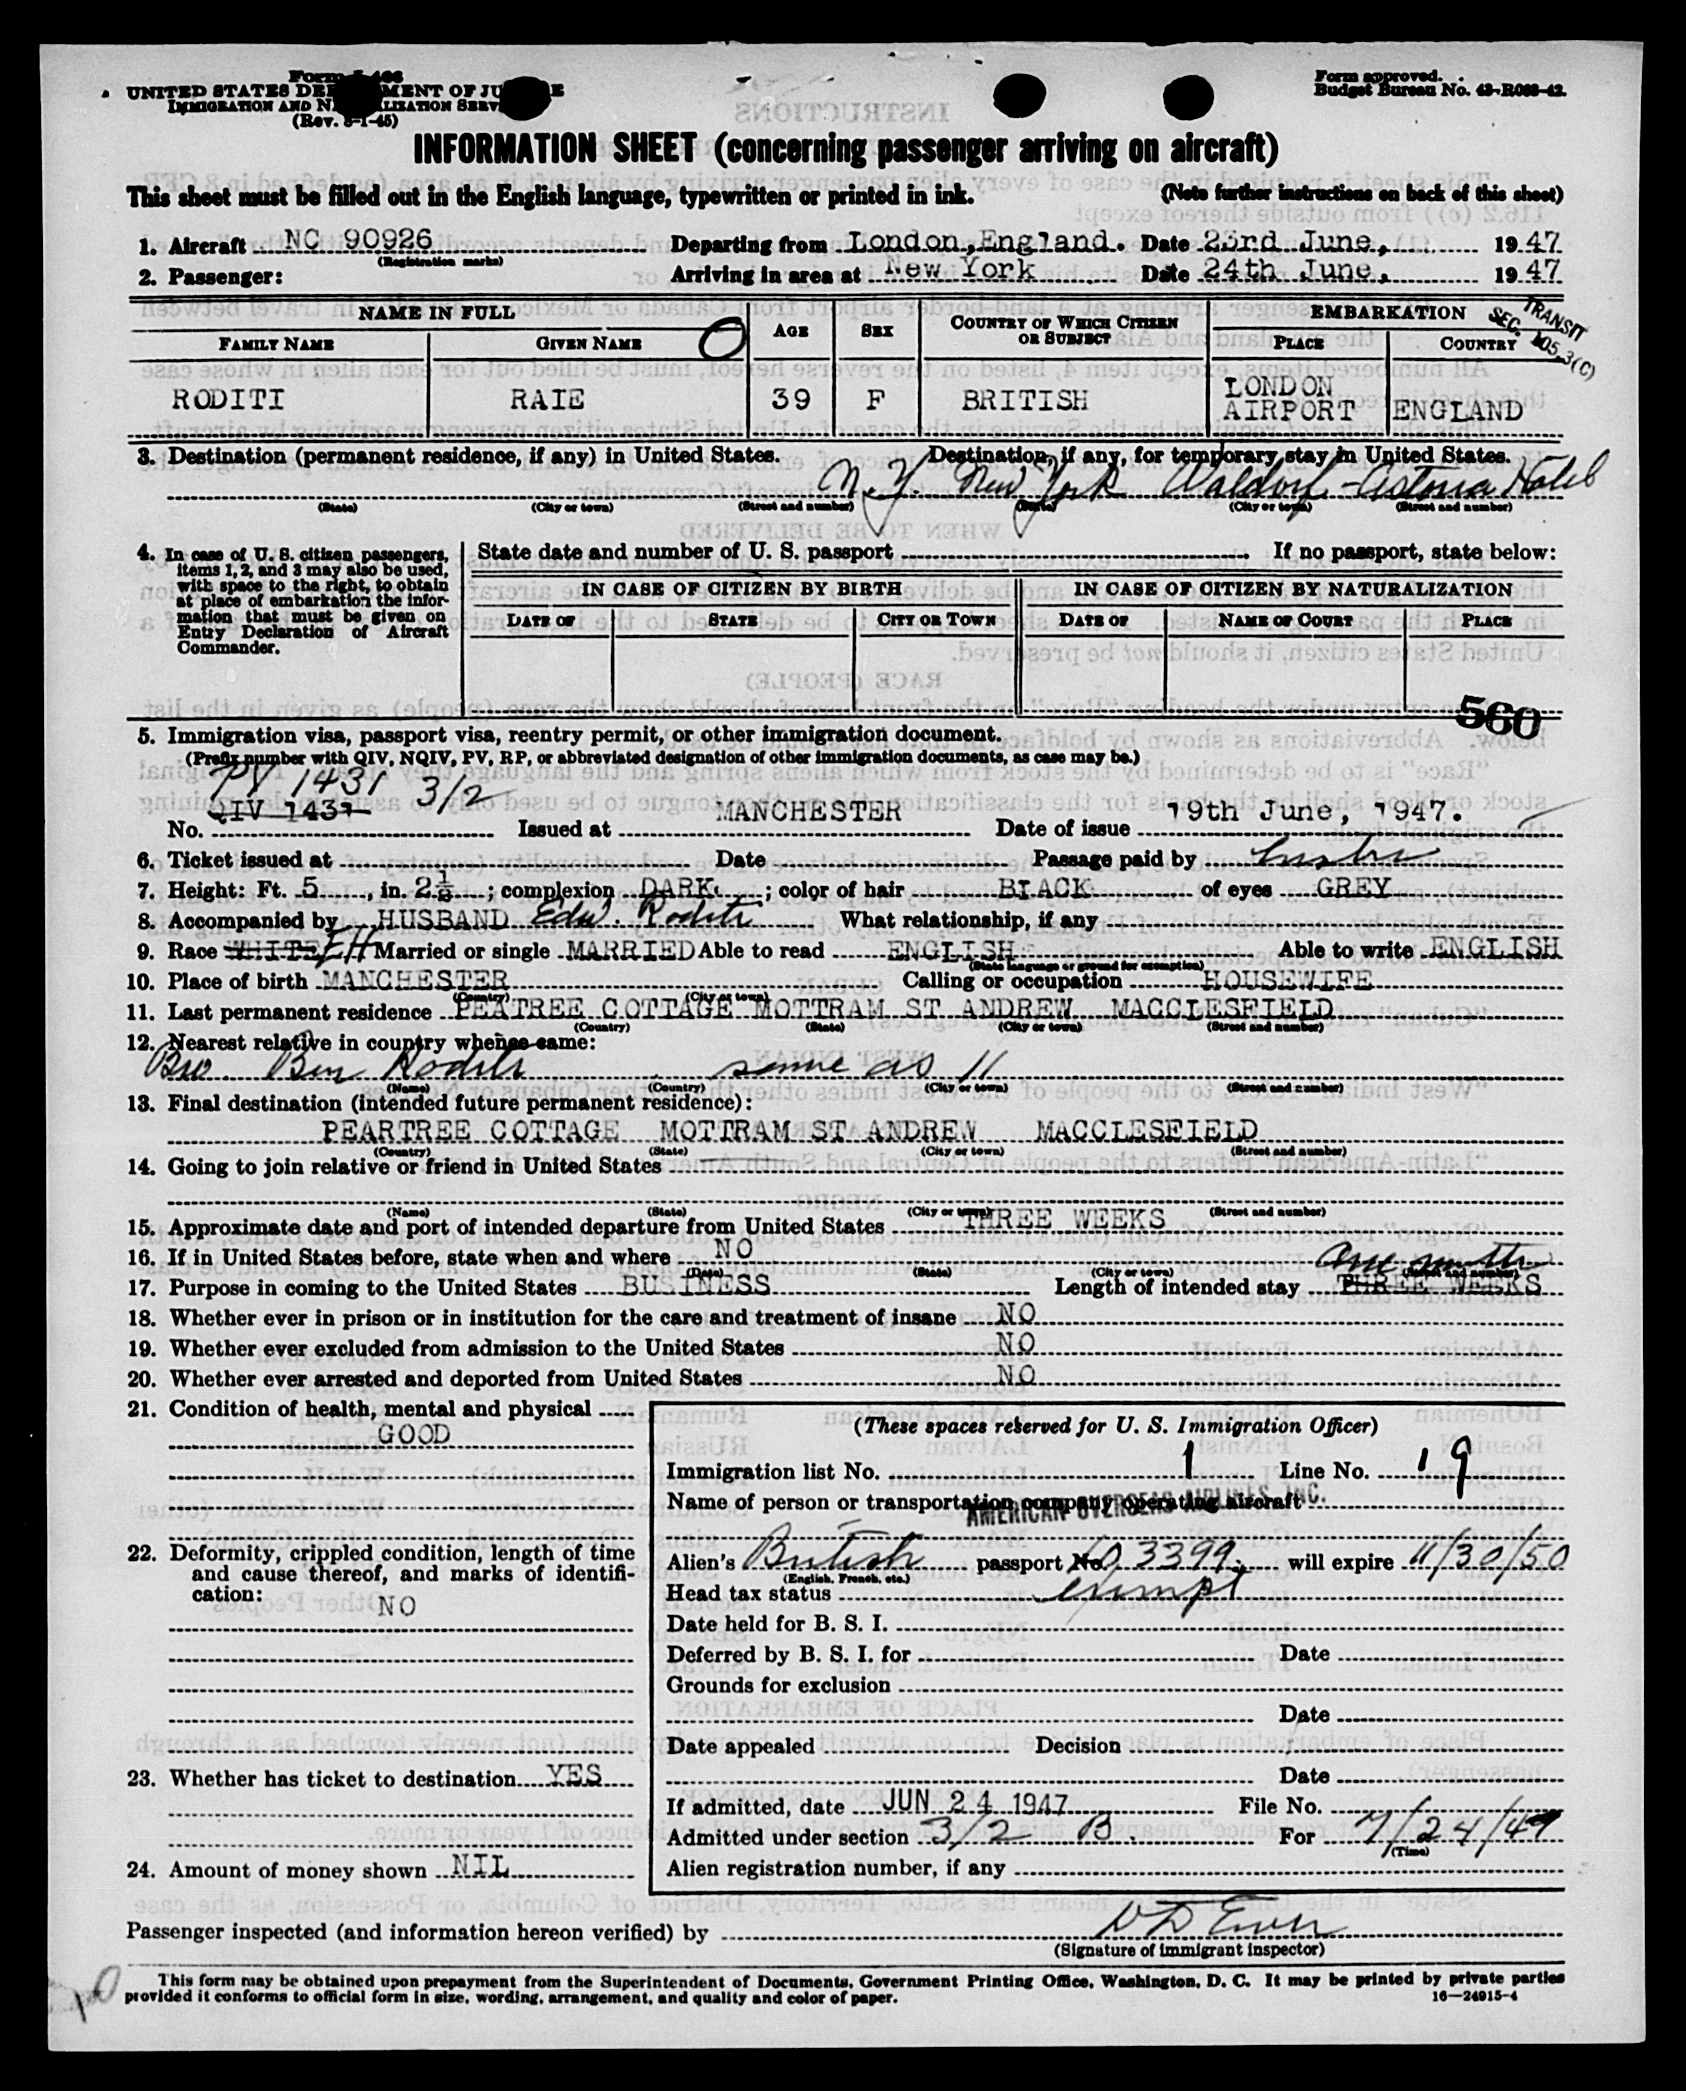 Form I-466
UNITED STATES DEPARTMENT OF JUSTICE
IMMIGRATION AND NATURALIZATION SERVICE
(Rev. 3-1-45)
Form approved.
Budget Bureau No. 43-R063-42.
INFORMATION SHEET (concerning passenger arriving on aircraft)
This sheet must be filled out in the English language, typewritten or printed in ink. (Note further instructions on back of this sheet)
1. Aircraft NC 90926 Departing from London, England. Date 23rd June, 1947
(Registration marks)
2. Passenger: Arriving in area at New York Date 24th June, 1947
NAME IN FULL AGE SEX COUNTRY OF WHICH CITIZEN OR SUBJECT EMBARKATION
TRANSIT
SEC. 105.3(C)
FAMILY NAME GIVEN NAME PLACE COUNTRY
RODITI RAIE 39 F BRITISH LONDON AIRPORT ENGLAND
3. Destination (permanent residence, if any) in United States. Destination, if any, for temporary stay in United States.
N.Y. New York Waldorf-Astoria Hotel
(State) (City or town) (Street and number) (State) (City or town) (Street and number)
4. In case of U. S. citizen passengers, items 1, 2, and 3 may also be used, with space to the right, to obtain at place of embarkation the information that must be given on Entry Declaration of Aircraft Commander.
State date and number of U. S. passport If no passport, state below:
IN CASE OF CITIZEN BY BIRTH IN CASE OF CITIZEN BY NATURALIZATION
DATE OF STATE CITY OR TOWN DATE OF NAME OF COURT PLACE
560
5. Immigration visa, passport visa, reentry permit, or other immigration document.
(Prefix number with QIV, NQIV, PV, RP, or abbreviated designation of other immigration documents, as case may be.)
PV 1431 3/2
No. QIV 1431 Issued at MANCHESTER Date of issue 19th June, 1947.
6. Ticket issued at Date Passage paid by
7. Height: Ft. 5, in. 2½; complexion DARK; color of hair BLACK of eyes GREY
8. Accompanied by HUSBAND Edw. Roditi What relationship, if any
9. Race WHITE EH Married or single MARRIED Able to read ENGLISH Able to write ENGLISH
(State language or ground for exemption)
10. Place of birth MANCHESTER Calling or occupation HOUSEWIFE
(Country) (City or town)
11. Last permanent residence PEATREE COTTAGE MOTTRAM ST ANDREW MACCLESFIELD
(Country) (State) (City or town) (Street and number)
12. Nearest relative in country whence came:
Bro. Ben Roditi same as 11
(Name) (Country) (City or town) (Street and number)
13. Final destination (intended future permanent residence):
PEARTREE COTTAGE MOTTRAM ST ANDREW MACCLESFIELD
(Country) (State) (City or town) (Street and number)
14. Going to join relative or friend in United States
(Name) (State) (City or town) (Street and number)
15. Approximate date and port of intended departure from United States THREE WEEKS
16. If in United States before, state when and where NO
(Date) (State) (City or town) (Street and number)
one month
17. Purpose in coming to the United States BUSINESS Length of intended stay THREE WEEKS
18. Whether ever in prison or in institution for the care and treatment of insane NO
19. Whether ever excluded from admission to the United States NO
20. Whether ever arrested and deported from United States NO
21. Condition of health, mental and physical
GOOD
22. Deformity, crippled condition, length of time and cause thereof, and marks of identification:
NO
23. Whether has ticket to destination YES
24. Amount of money shown NIL
(These spaces reserved for U. S. Immigration Officer)
Immigration list No. 1 Line No. 19
Name of person or transportation company operating aircraft
AMERICAN OVERSEAS AIRLINES, INC.
Alien's British passport No. 3399 will expire 11/30/50
(English, French, etc.)
Head tax status exempt
Date held for B. S. I.
Deferred by B. S. I. for Date
Grounds for exclusion
Date
Date appealed Decision
Date
If admitted, date JUN 24 1947 File No.
Admitted under section 3/2 B. For 7/24/47
(Time)
Alien registration number, if any
Passenger inspected (and information hereon verified) by
(Signature of immigrant inspector)
This form may be obtained upon prepayment from the Superintendent of Documents, Government Printing Office, Washington, D. C. It may be printed by private parties
provided it conforms to official form in size, wording, arrangement, and quality and color of paper. 16—24915-4